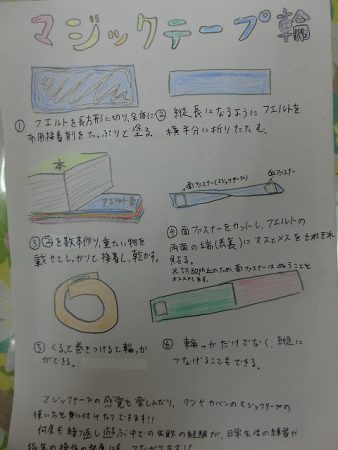 マジックテープ輪
① フエルトを長方形に切り、全体に
布用接着剤をたっぷりと塗る。
② 縦長になるようにフエルトを
横半分に折りたたむ。
本
フエルト
③ ②を数本作り、重たい物を
載せてしっかりと接着し、乾かす。
面ファスナー(マジックテープ)
面ファスナー
④ 面ファスナーをカットし、フエルトの
両面の端(表裏)にオスとメスをそれぞれ
⑤ くるっと巻きつけると輪っか
ができる。
⑥ 輪っかだけでなく、縦に
つなげることもできる。
マジックテープの感覚を楽しんだり、クツやカバンのマジックテープの
使い方を身に付けたりできます!!
何度も繰り返し遊ぶ中での失敗の経験が、日常生活の練習や